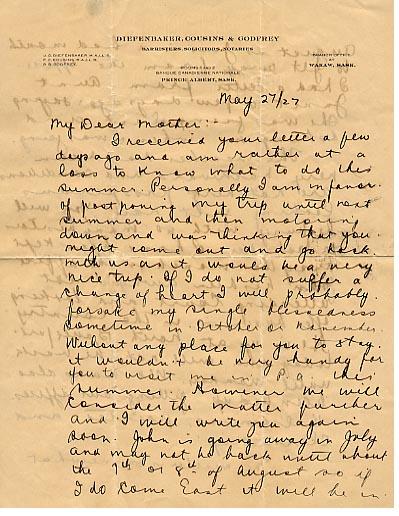 DIEFENBAKER, COUSINS & GODFREY
BARRISTERS, SOLICITORS, NOTARIES
J. G. DIEFENBAKER M.A., LL.B.
F. C. COUSINS, M.A., LL.M.
ROOMS 1 AND 2
BANQUE CANADIENNE NATIONALE
PRINCE ALBERT, SASK.
BRANCH OFFICE
AT
WAKAW, SASK.
May 27/27
My Dear Mother:-
I received your letter a few
days ago and am rather at a
loss to know what to do this
summer. Personally I am in favor
of postponing my trip until next
summer and then motoring
down and was thinking that you
might come out and go back
with us as it would be a very
nice trip. If I do not suffer a
change of heart I will probably
forsake my single blessedness
sometime in October or November.
Without any place for you to stay
it wouldn't be very handy for
you to visit me in P.A. this
summer. However we will
consider the matter further
and I will write you again
soon. John is going away in July
and may not be back until about
the 7th or 8th of August so if
I do come East it will be in